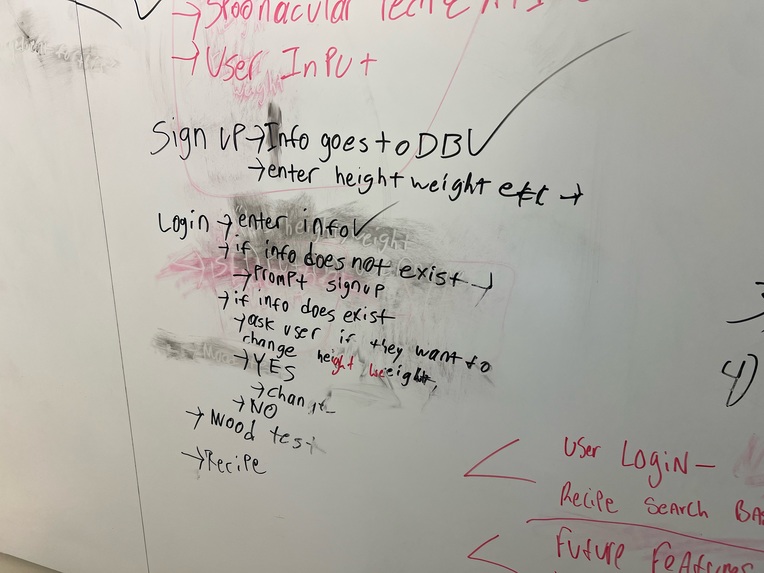 → Spoonacular
→ User InPut
Sign UP → Info goes to DB ✓
→ enter height weight etc →
Login → enter info ✓
→ if info does not exist →
→ Prompt signup
→ if info does exist
→ ask user if they want to
change height weight,
→ YES
→ chan
→ NO
→ Mood test
→ Recipe
4)
User LOGiN –
Recipe Search
Future Features